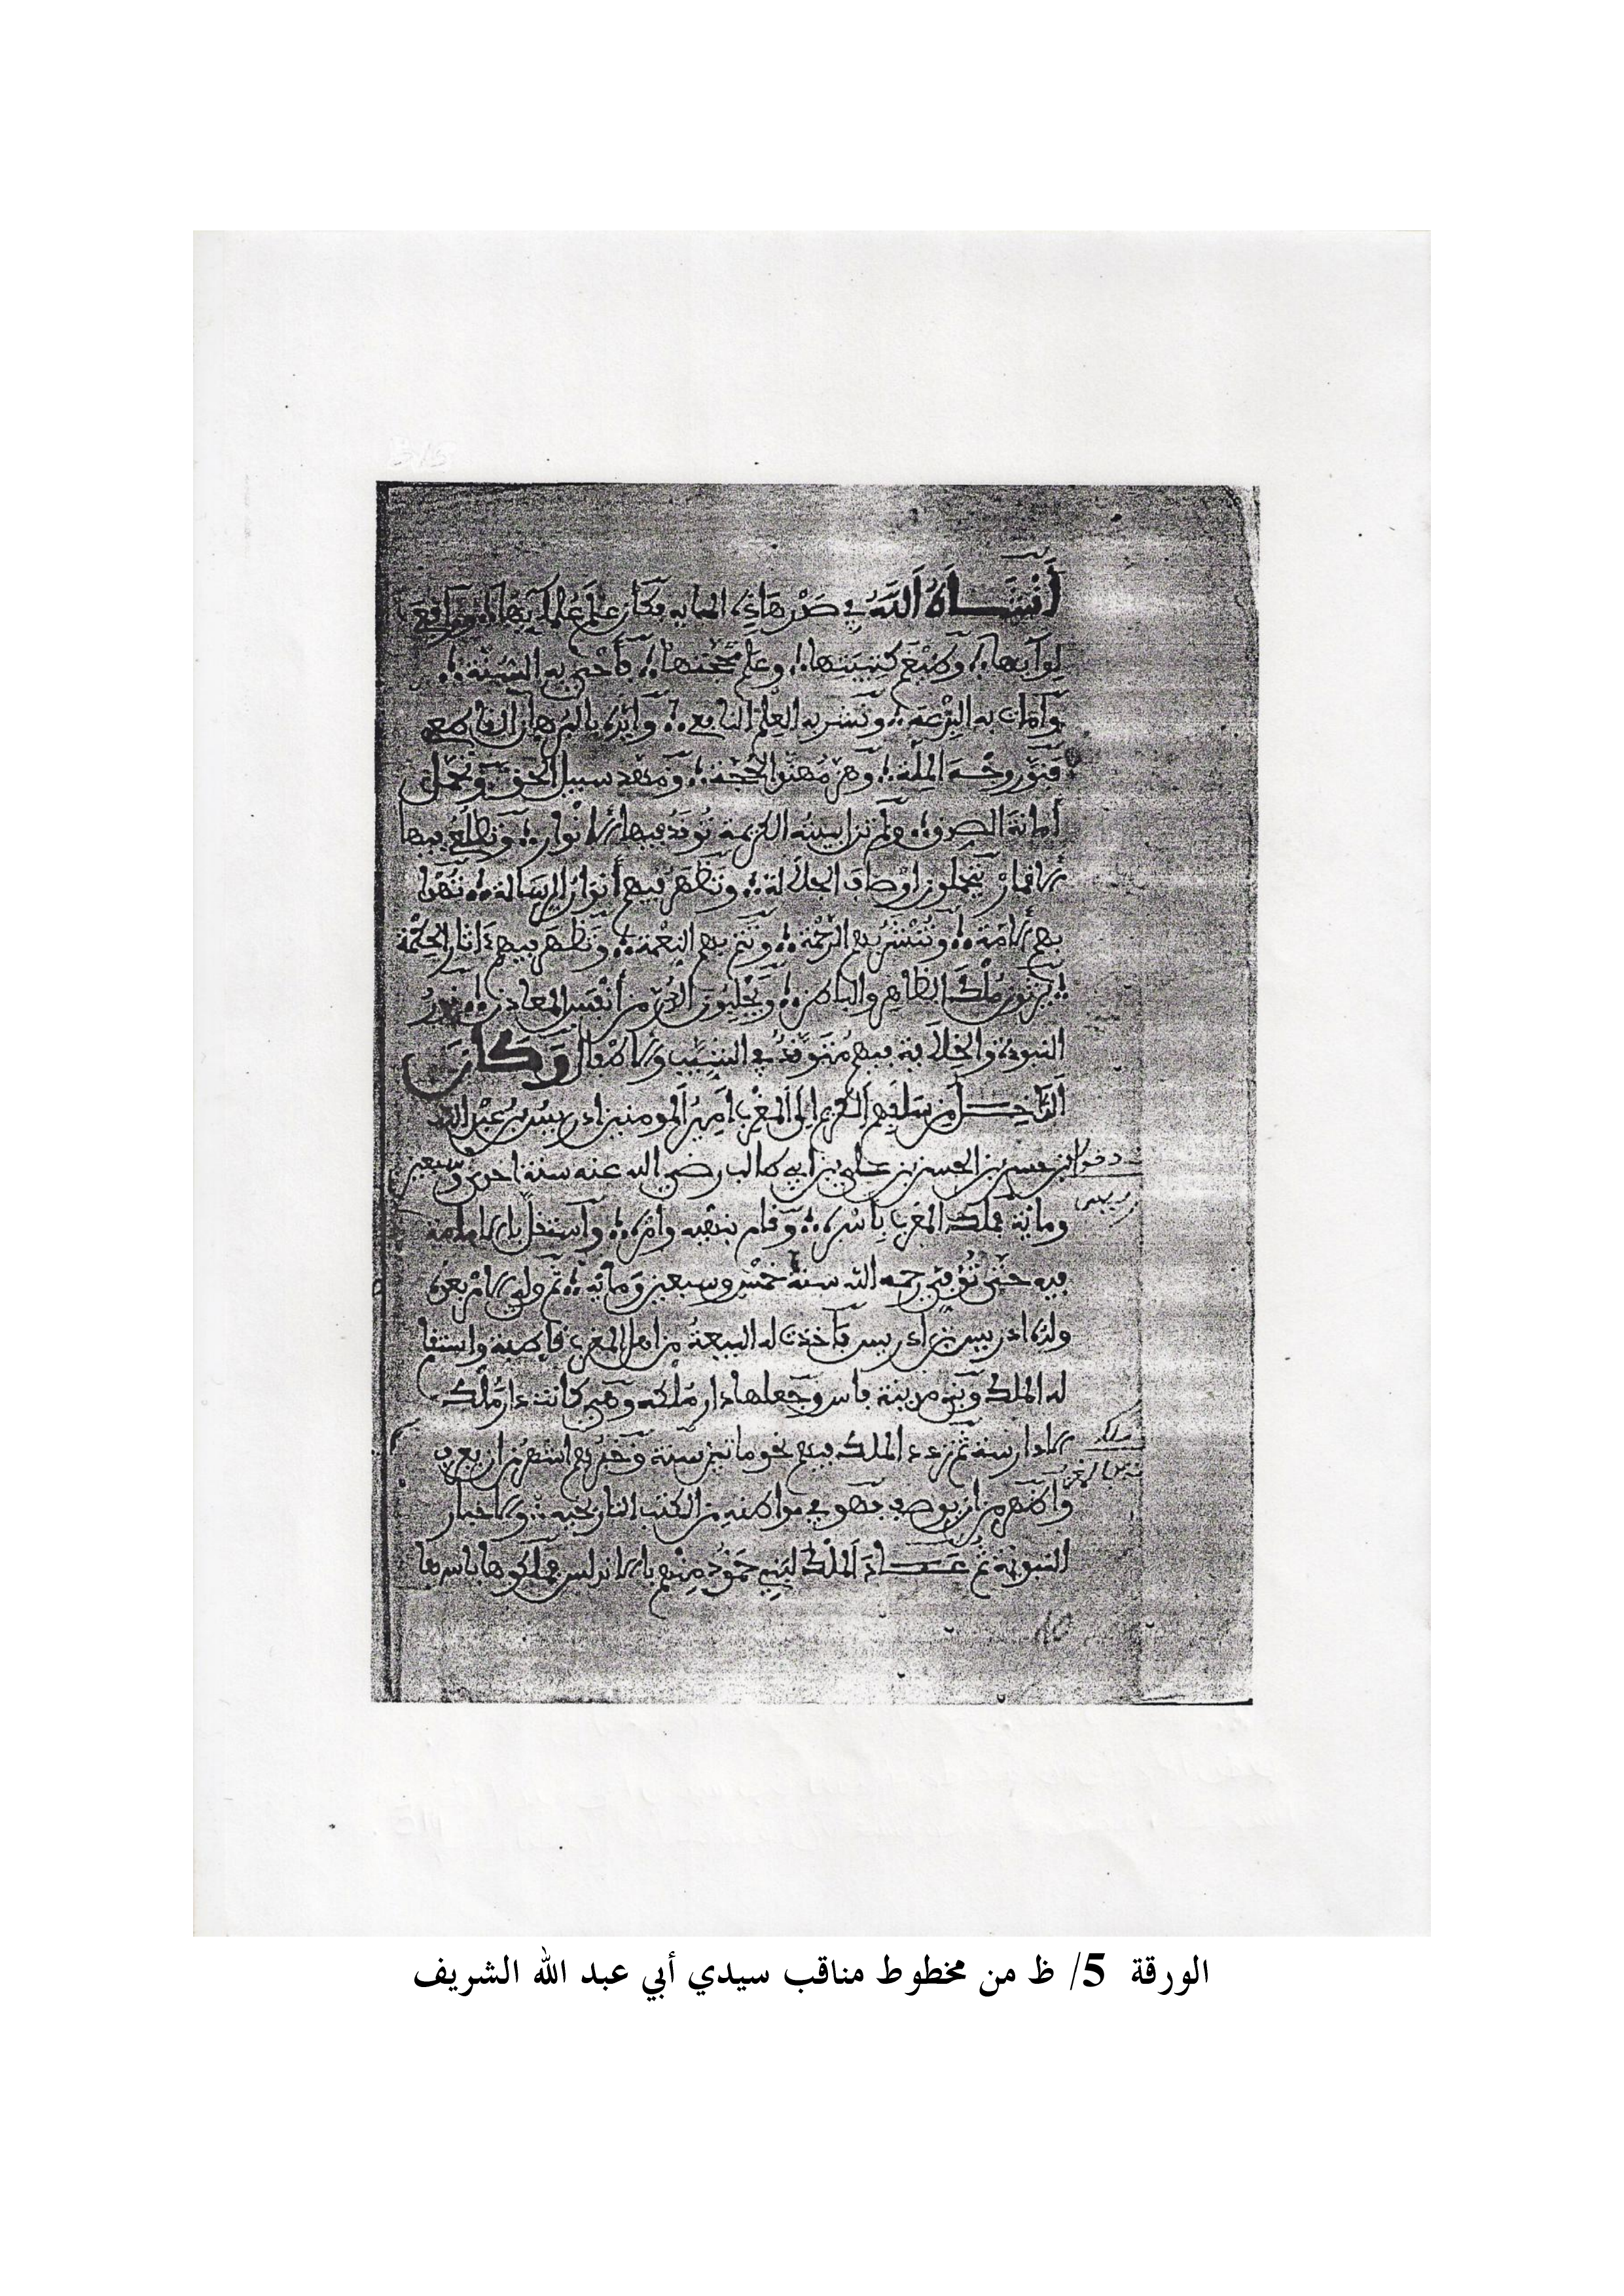 أنشأه الله في صدر هاذه الماية فكان علم علمايها ورافع
لوايها وكبع كتيبتها وعلم محجتها فأحيى به السنة
وأمات به البدعة ونشر به العلم النافع وأيده بالبرهان القاطع
فنور وجه الملة الحجة ومهد سبيل الحق وتحمل
أمانة الصدق ولم تزل بيته الكريمة توقد فيها الأنوار وتطلع فيها
الأقمار يتحلون أوصاف الجلالة وتظهر فيهم أنوار الرسالة تهدى
بهم الأمة وتنتشر بهم الرحمة وتتم بهم النعمة وتظهر فيهم ءاثار الحكمة
يرثون ملك الظاهر والباطن ويجلبون الدر من أنفس المعادن نور
النبوة والخلافة فيهم متوقد في النسب والأفعال وكان
الداخل من سلفهم الكريم إلى المغرب أمير المومنين ادريس بن عبد الله
بن حسن بن الحسن بن علي بن أبي طالب رضي الله عنه سنة احدى وسبعين
وماية فملك المغرب بأسره وقام بنفسه وأمره واستقل بالإمامة
فيه حتى توفي رحمه الله سنة خمس وسبعين وماية ثم ولي الأمر بعده
ولده ادريس بن ادريس فأخذت له البيعة من أهل المغرب قاطبة واستقا
له الملك وبنى مدينة فاس وجعلها دار ملكه وهي كانت دار ملك
الأدارسة ثم تردد الملك فيهم نحو مايتين سنة وخبرهم أشهر من أن يعرف
وأظهر من أن يوصف فهو في مواطنه من الكتب التاريخية والأخبار
النبوية ثم عاد الملك لبني حمود منهم بالأندلس فملكوها بأسرها
الورقة 5/ ظ من مخطوط مناقب سيدي أبي عبد الله الشريف